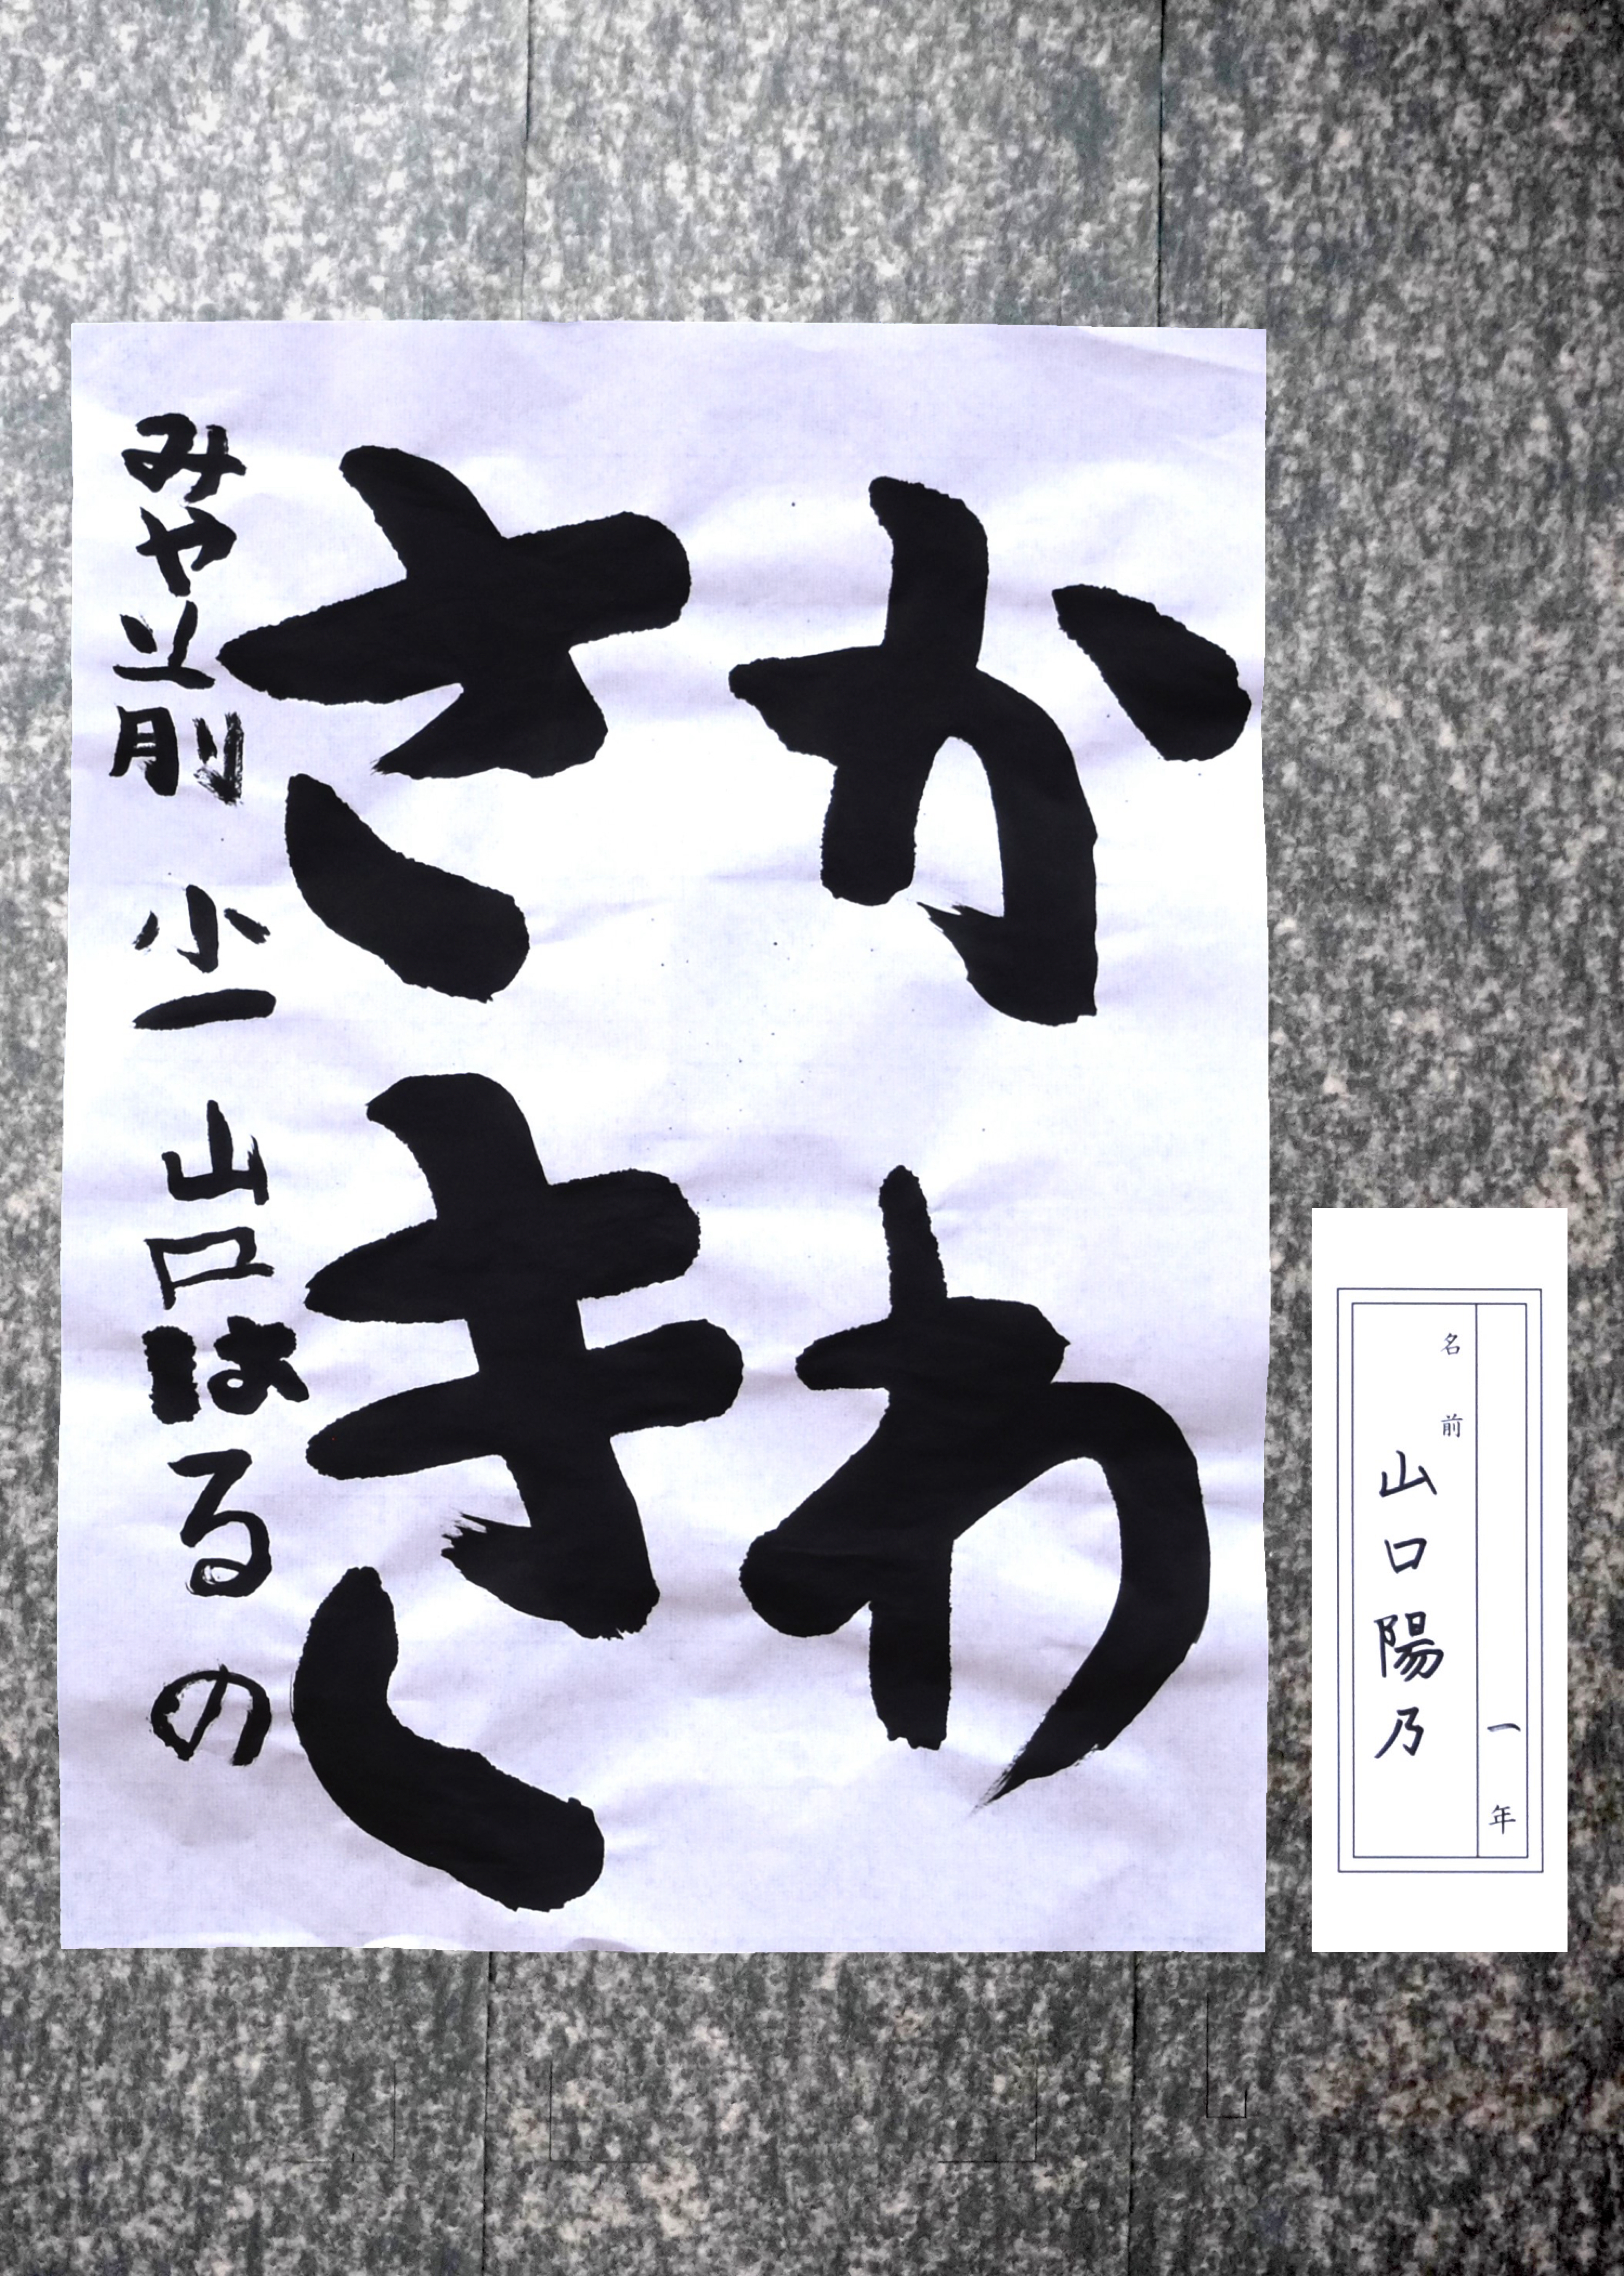 かわ
さきし
みや前 小一 山口はるの
一年
名前
山口陽乃